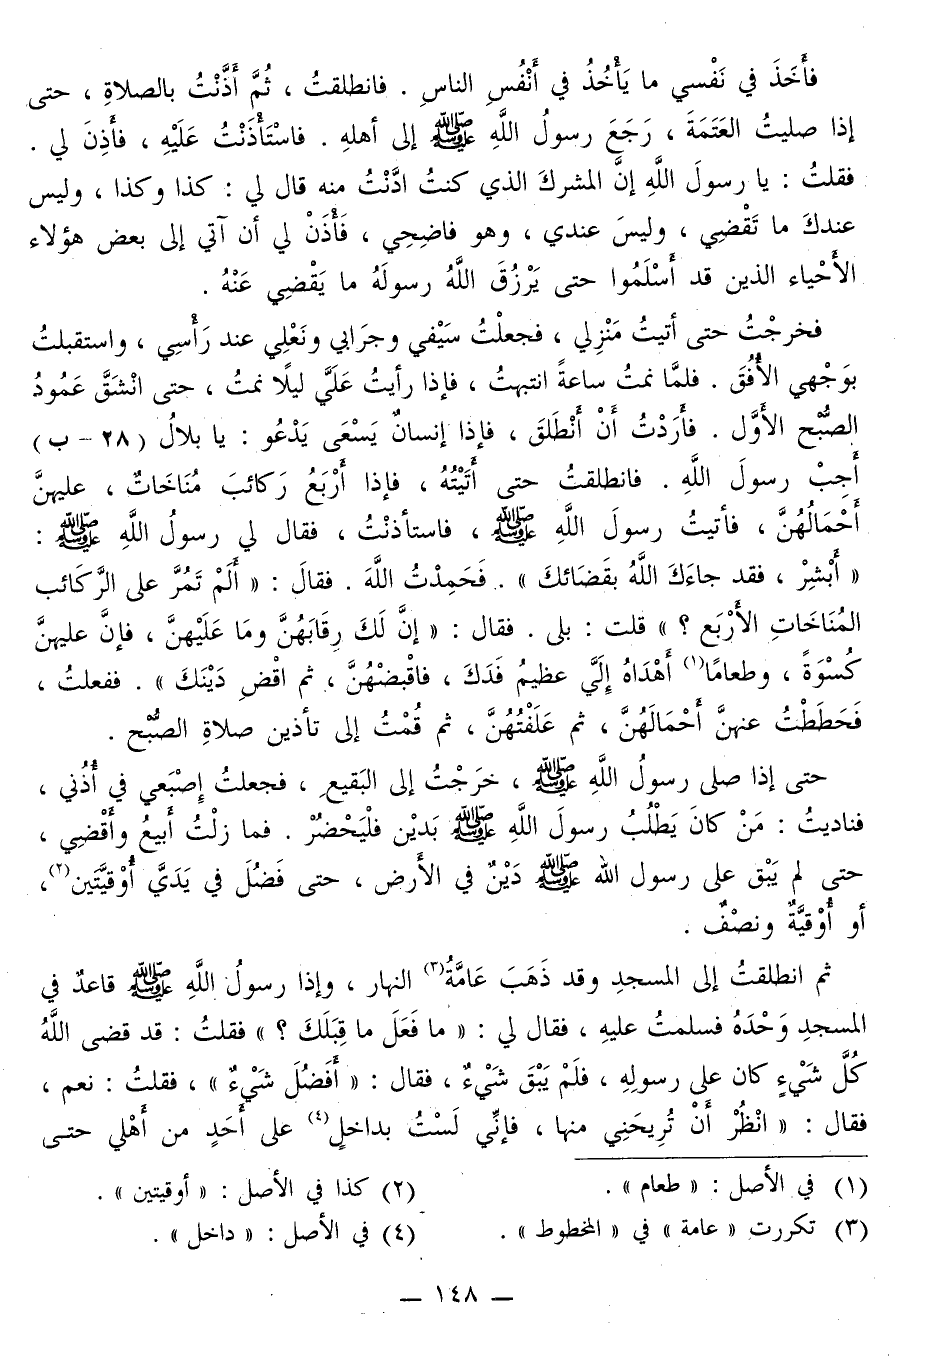 فأَخَذَ في نَفْسي ما يَأْخُذُ في أَنْفُسِ الناسِ . فانطلقتُ ، ثُمَّ أَذَّنْتُ بالصلاةِ ، حتى
إذا صليتُ العَتَمَةَ ، رَجَعَ رسولُ اللَّهِ ﷺ إلى أهلهِ . فاسْتَأْذَنْتُ عَلَيْهِ ، فأَذِنَ لي .
فقلتُ : يا رسولَ اللَّهِ إنَّ المشركَ الذي كنتُ ادَّنْتُ منه قال لي : كذا وكذا ، وليس
عندكَ ما تَقْضِي ، وليسَ عندي ، وهو فاضِحِي ، فَأْذَنْ لي أن آتي إلى بعض هؤلاء
الأَحْياء الذين قد أَسْلَمُوا حتى يَرْزُقَ اللَّهُ رسولَهُ ما يَقْضِي عَنْهُ .
فخرجْتُ حتى أتيتُ مَنْزِلي ، فجعلْتُ سَيْفي وجرَابي ونَعْلِي عند رَأْسِي ، واستقبلتُ
بوَجْهي الأُفُقَ . فلمَّا نمتُ ساعةً انتبهتُ ، فإذا رأيتُ عَلَيَّ ليلًا نمتُ ، حتى انْشَقَّ عَمُودُ
الصبُّح الأَوَّل . فأَرَدْتُ أَنْ أَنْطَلقَ ، فإذا إنسانٌ يَسْعَى يَدْعُو : يا بلالُ ( ٢٨ – ب )
أَجِبْ رسولَ اللَّهِ . فانطلقتُ حتى أَتَيْتُهُ ، فإذا أَرْبَعُ رَكائبَ مُنَاخَاتٌ ، عليهنَّ
أَحْمَالُهُنَّ ، فأتيتُ رسولَ اللَّهِ ﷺ ، فاستأذنْتُ ، فقال لي رسولُ اللَّهِ ﷺ :
« أَبْشِرْ ، فقد جاءَكَ اللَّهُ بقَضَائكَ » . فَحَمِدْتُ اللَّهَ . فقالَ : « أَلَمْ تَمُرَّ على الرَّكَائب
المُنَاخَاتِ الأَرْبَع ؟ » قلت : بلى . فقال : « إنَّ لَكَ رِقَابَهُنَّ ومَا عَلَيْهنَّ ، فإنَّ عليهنَّ
كُسْوَةً ، وطعامًا(١) أَهْدَاهُ إلَيَّ عظيمُ فَدَكَ ، فاقْبضْهُنَّ ، ثم اقْضِ دَيْنَكَ » . ففعلتُ ،
فَحَطَطْتُ عنهنَّ أَحْمَالَهُنَّ ، ثم عَلَفْتُهُنَّ ، ثم قُمْتُ إلى تأذين صلاةِ الصبُّح .
حتى إذا صلى رسولُ اللَّهِ ﷺ ، خرَجْتُ إلى البَقيعِ ، فجعلتُ إصْبَعي في أُذُني ،
فناديتُ : مَنْ كانَ يَطْلُبُ رسولَ اللَّهِ ﷺ بَديْن فلْيَحْضُرْ . فما زلْتُ أَبيعُ وأَقْضِي ،
حتى لم يَبْق على رسول الله ﷺ دَيْنٌ في الأَرض ، حتى فَضُلَ في يَدَيَّ أُوْقِيَّتَين(٢)،
أو أُوْقيَّةٌ ونصْفٌ .
ثم انطلقتُ إلى المسجدِ وقد ذَهَبَ عَامَّةُ(٣) النهار ، وإذا رسولُ اللَّهِ ﷺ قاعدٌ في
المسجدِ وَحْدَهُ فسلمتُ عليهِ ، فقال لي : « ما فَعَلَ ما قِبَلَكَ ؟ » فقلتُ : قد قضى اللَّهُ
كُلَّ شَيْءٍ كان على رسولِهِ ، فلَمْ يَبْق شَيْءٌ ، فقال : « أَفَضُلَ شَيْءٌ » ، فقلتُ : نعم ،
فقال : « انْظُرْ أَنْ تُريحَنِي منها ، فإنِّي لَسْتُ بداخلٍ(٤) على أَحَدٍ من أَهْلي حتى
(١) في الأصل : « طعام » .
(٢) كذا في الأصل : « أوقيتين » .
(٣) تكررت « عامة » في « المخطوط » .
(٤) في الأصل : « داخل » .
— ١٤٨ —